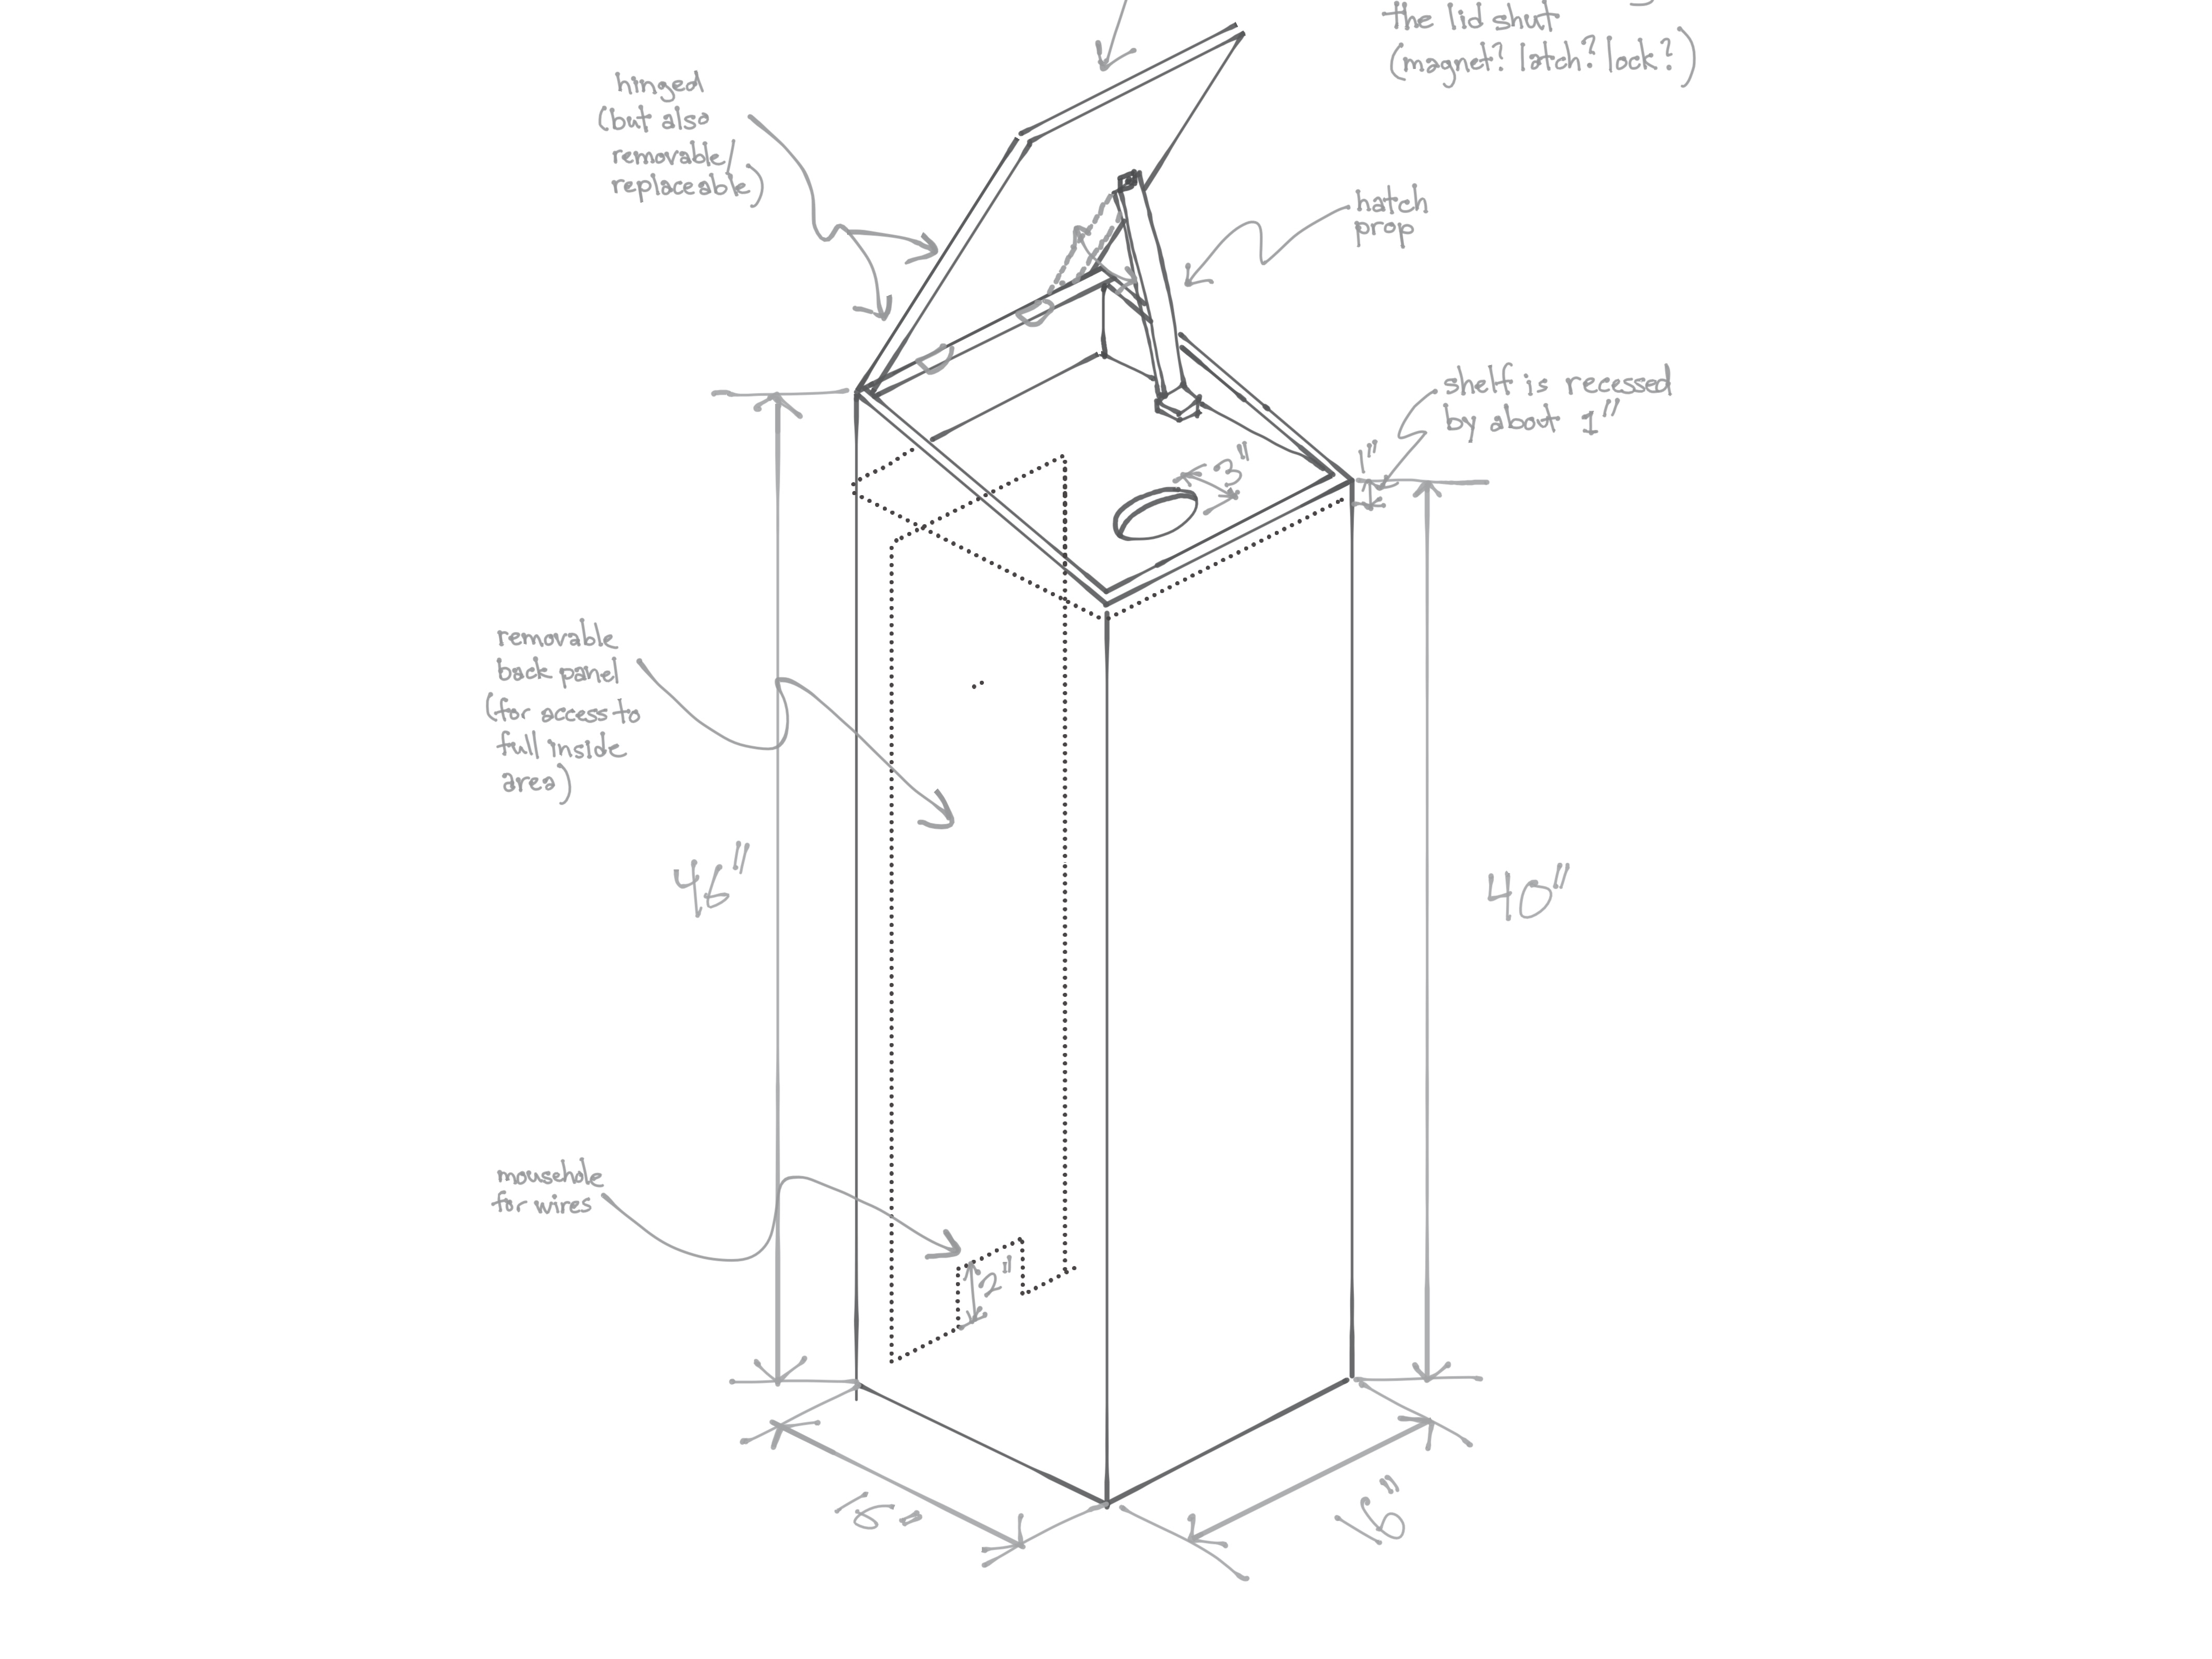 the lid shut
(magnet? latch? lock?)
hinged
(but also
removable/
replaceable)
hatch
prop
shelf is recessed
by about 1"
1"
3"
removable
back panel
(for access to
full inside
area)
46"
40"
mousehole
for wires
2"
16"
16"